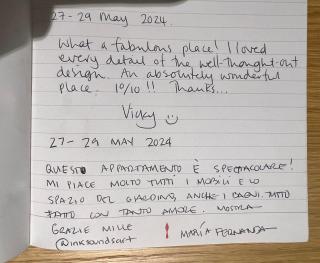 27-29 May 2024.
What a fabulous place! I loved
every detail of the well-thought-out
design. An absolutely wonderful
place. 10/10!! Thanks...
Vicky
27-29 MAY 2024
QUESTO APPARTAMENTO È SPETTACOLARE!
MI PIACE MOLTO TUTTI I MOBILI E LO
SPAZIO DEL GIARDINO, ANCHE I TUTTO
FATTO CON TANTO AMORE. MOSTRA
GRAZIE MILLE ! MARÍA FERNANDA
@inksoundsart